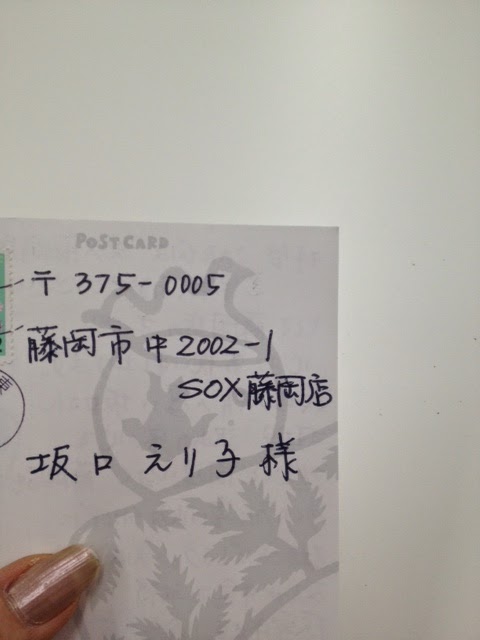 POSTCARD
〒 375-0005
藤岡市中2002-1
SOX藤岡店
坂口えり子様